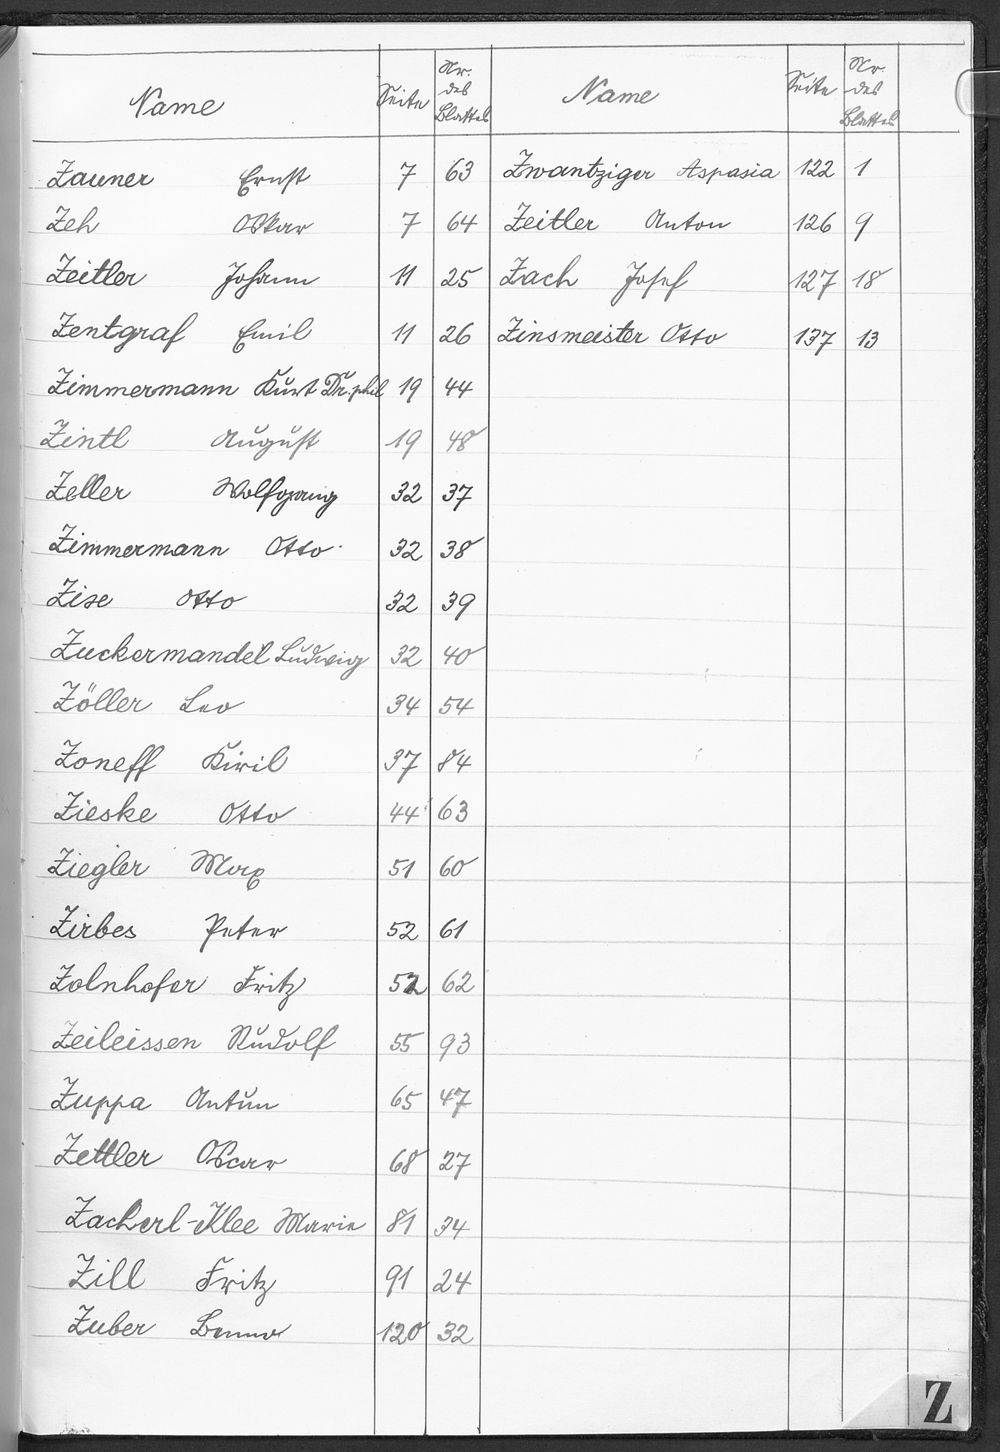 Name Seite Nr. des Blattes
Zauner Ernst 7 63
Zeh Oskar 7 64
Zeitler Johann 11 25
Zentgraf Emil 11 26
Zimmermann Kurt Dr. phil 19 44
Zintl August 19 48
Zeller Wolfgang 32 37
Zimmermann Otto 32 38
Zise Otto 32 39
Zuckermandel Ludwig 32 40
Zöller Leo 34 54
Zoneff Kiril 37 84
Zieske Otto 44 63
Ziegler Max 51 60
Zirbes Peter 52 61
Zolnhofer Fritz 52 62
Zeileissen Rudolf 55 93
Zuppa Antun 65 47
Zettler Oscar 68 27
Zacherl-Klee Marie 81 34
Zill Fritz 91 24
Zuber Benno 120 32
Name Seite Nr. des Blattes
Zwantziger Aspasia 122 1
Zeitler Anton 126 9
Zach Josef 127 18
Zinsmeister Otto 137 13
Z